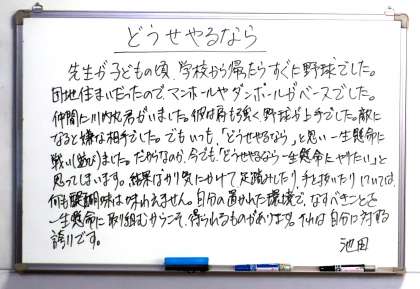 どうせやるなら
先生が子どもの頃、学校から帰たらすぐに野球でした。
団地住まいだったので、マンホールやダンボールがベースでした。
仲間に川内地君がいました。彼は肩も強く野球が上手でした。敵に
なると嫌な相手でした。でもいつも、「どうせやるなら」と思い一生懸命に
戦い(遊び)ました。だからなのか、今でも「どうせやるなら一生懸命にやりたい」と
思ってしまいます。結果ばかり気にかけて足踏みしたり、手を抜いたりしていては、
何も醍醐味は味わえません。自分の置かれた環境で、なすべきことを
一生懸命に取り組むからこそ、得られるものがあります。それは自分に対する
誇りです。
池田